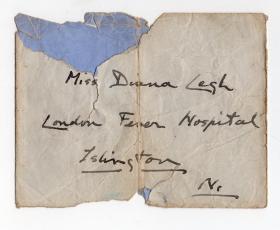 Miss Diana Legh
London Fever Hospital
Islington
N.